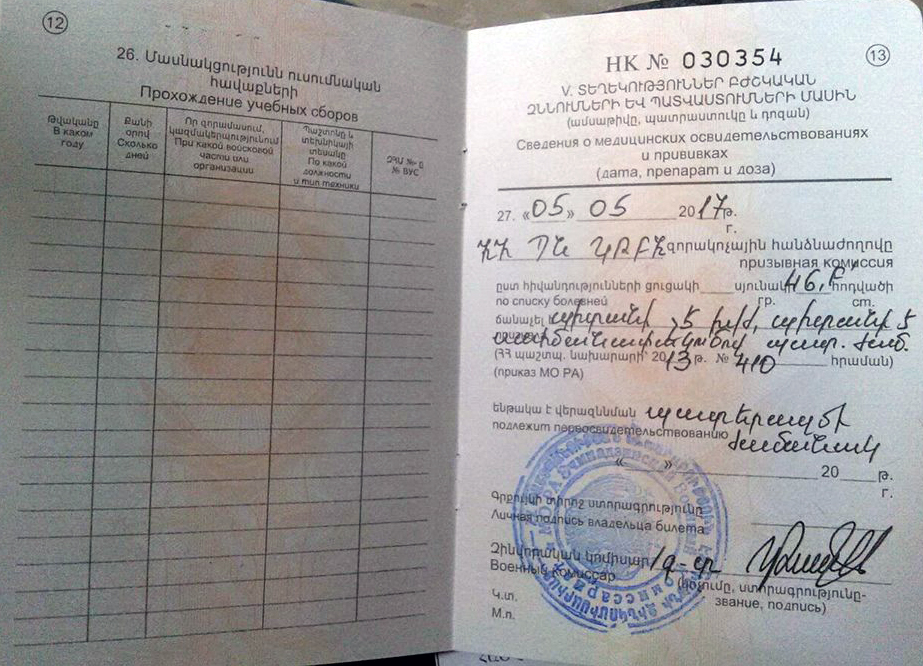 12
26. Մասնակցությունն ուսումնական
հավաքների
Прохождение учебных сборов
Թվականը
В каком
году
Քանի
օրով
Сколько
дней
Որ զորամասում,
կազմակերպությունում
При какой войсковой
части или
организации
Պաշտոնը և
տեխնիկայի
տեսակը
По какой
должности
и тип техники
ԶՀՄ № ը
№ ВУС
13
НК № 030354
V. ՏԵՂԵԿՈՒԹՅՈՒՆՆԵՐ ԲԺՇԿԱԿԱՆ
ԶՆՆՈՒՄՆԵՐԻ ԵՎ ՊԱՏՎԱՍՏՈՒՄՆԵՐԻ ՄԱՍԻՆ
(ամսաթիվը, պատրաստուկը և դոզան)
Сведения о медицинских освидетельствованиях
и прививках
(дата, препарат и доза)
27. «05» 05 2017թ.
г.
ՀՀ ՊՆ ԿՌԲՀ զորակոչային հանձնաժողովը
призывная комиссия
ըստ հիվանդությունների ցուցակի սյունակի 46,բ հոդվածի
по списку болезней гр. ст.
ճանաչել է պիտանի է
(ՀՀ պաշտպ. նախարարի 2013թ. № 410 հրաման)
(приказ МО РА)
ենթակա է վերազննման պատերազմի
подлежит переосвидетельствованию ժամանակ
« » 20 թ.
г.
Գրքույկի տիրոջ ստորագրությունը
Личная подпись владельца билета
Զինվորական կոմիսար
Военный комиссар
(կոչումը, ստորագրությունը-
звание, подпись)
Կ.տ.
М.п.